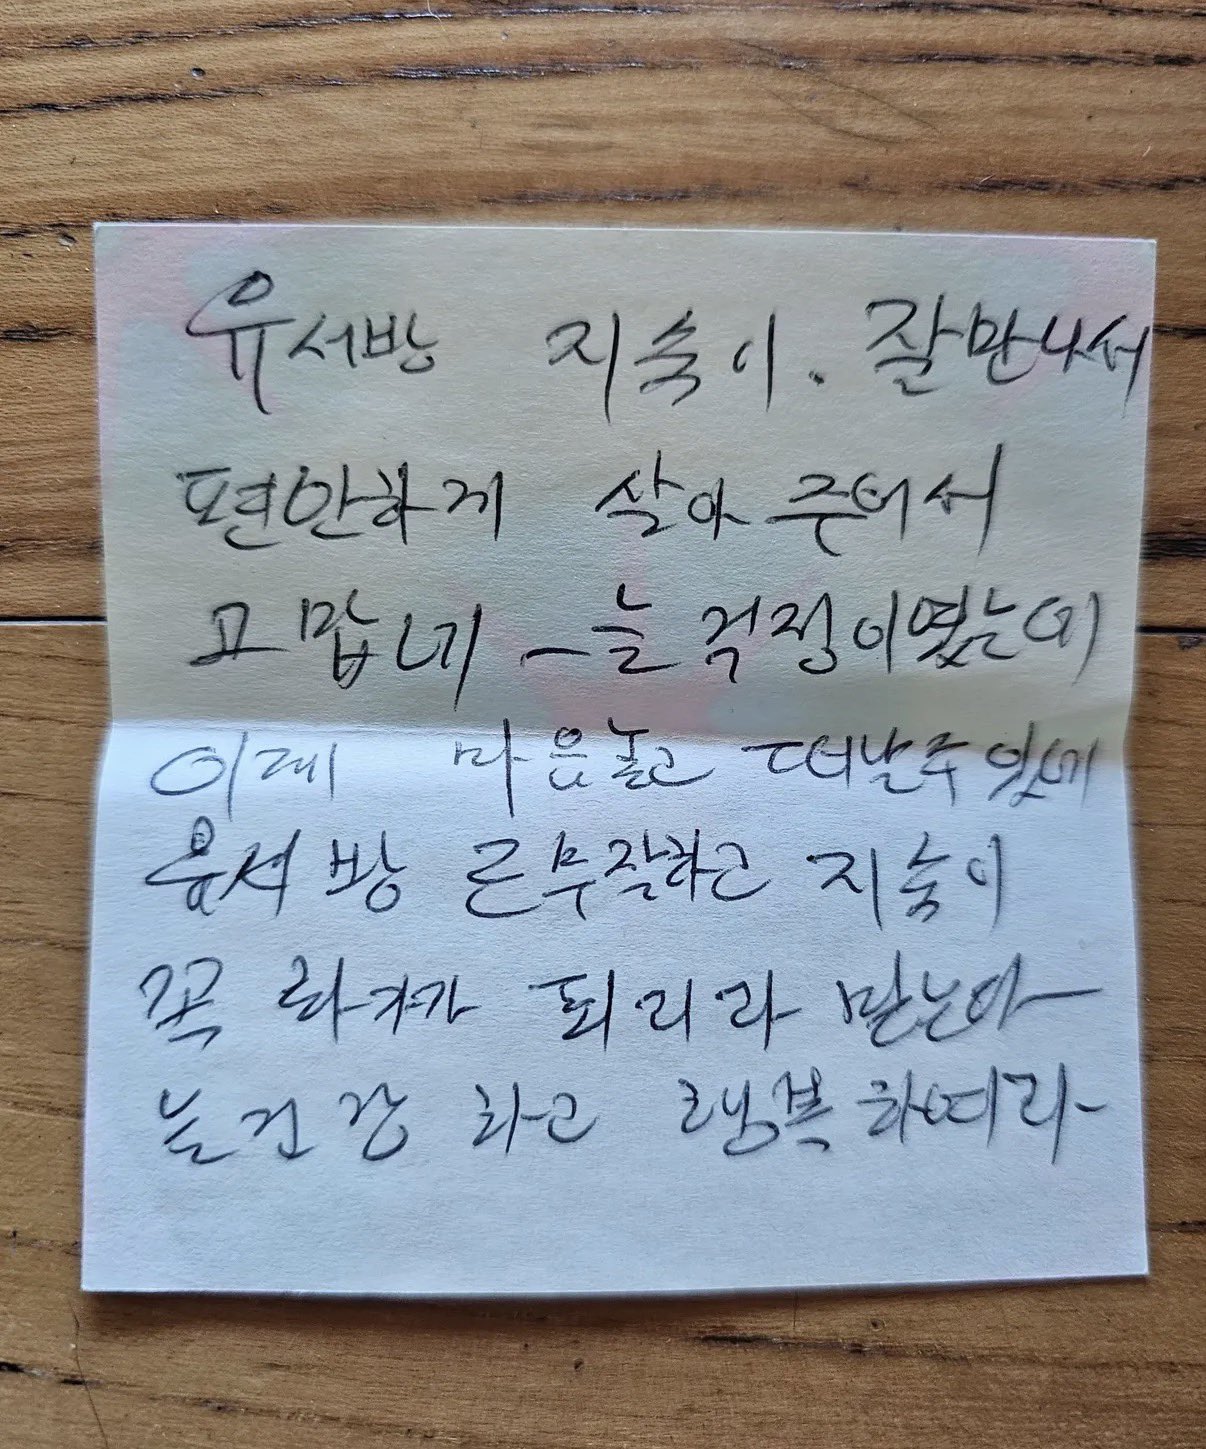 유서방 지숙이. 잘만나서
편안하게 살아 주어서
고맙네 늘 걱정이였는데
이제 마음놓고 떠날수있네
유서방 근부잘하고 지숙이
꼭 화가가 되리라 믿는다
늘건강 하고 행복하여라